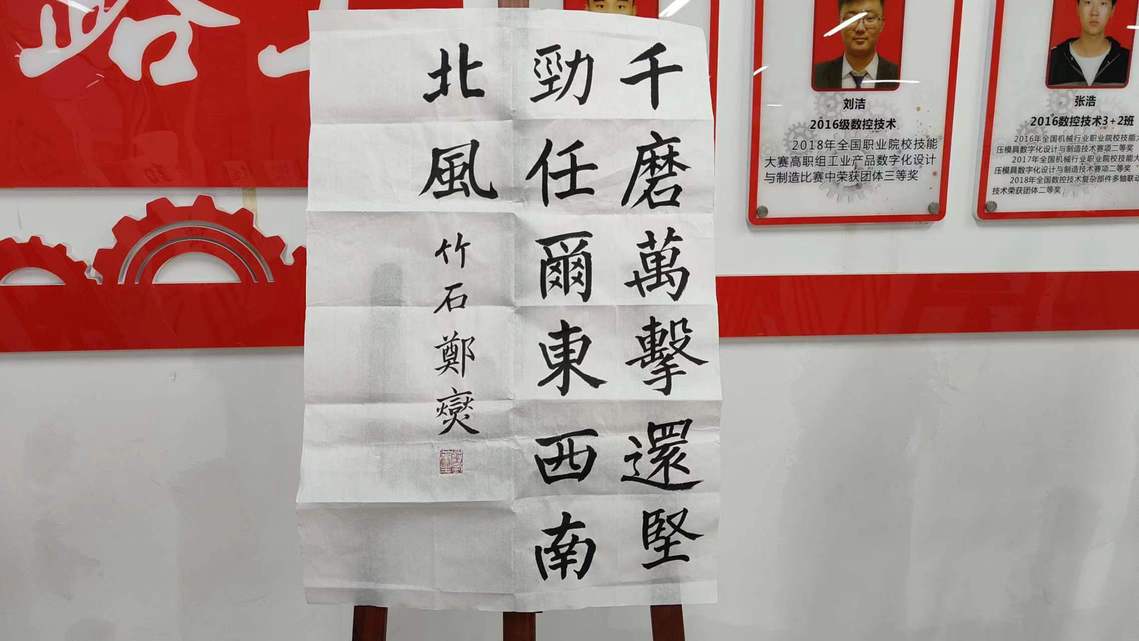 千磨萬擊還堅
勁任爾東西南
北風
竹石鄭燮
刘洁
2016级数控技术
2018年全国职业院校技能
大赛高职组工业产品数字化设计
与制造比赛中荣获团体三等奖
张浩
2016数控技术3+2班
2016年全国机械行业职业院校技能大
压模具数字化设计与制造技术赛项二等奖
2017年全国机械行业职业院校技能大
压模具数字化设计与制造技术赛项二等奖
2018年全国数控技术复杂部件多轴联动
技术荣获团体二等奖